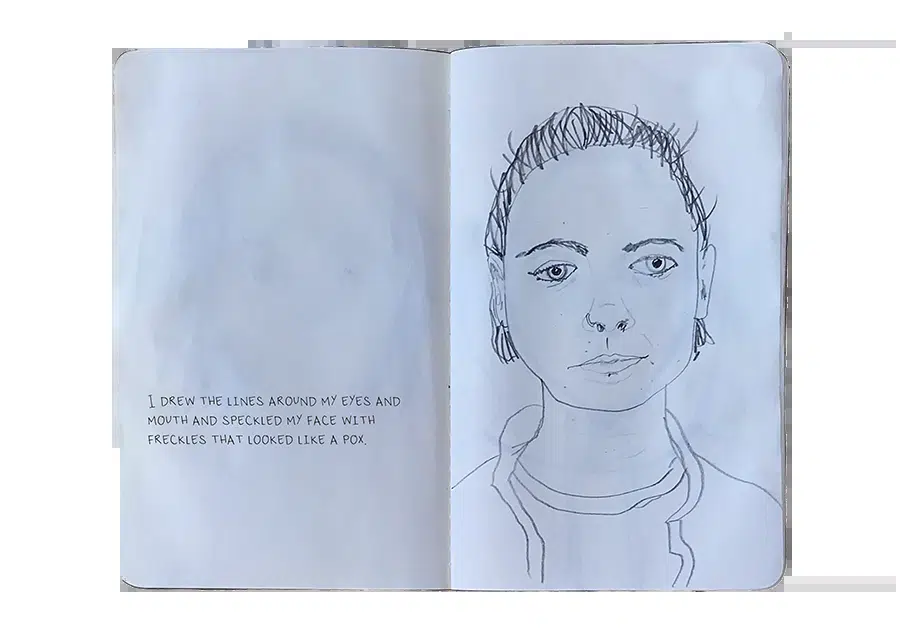 I DREW THE LINES AROUND MY EYES AND
MOUTH AND SPECKLED MY FACE WITH
FRECKLES THAT LOOKED LIKE A POX.